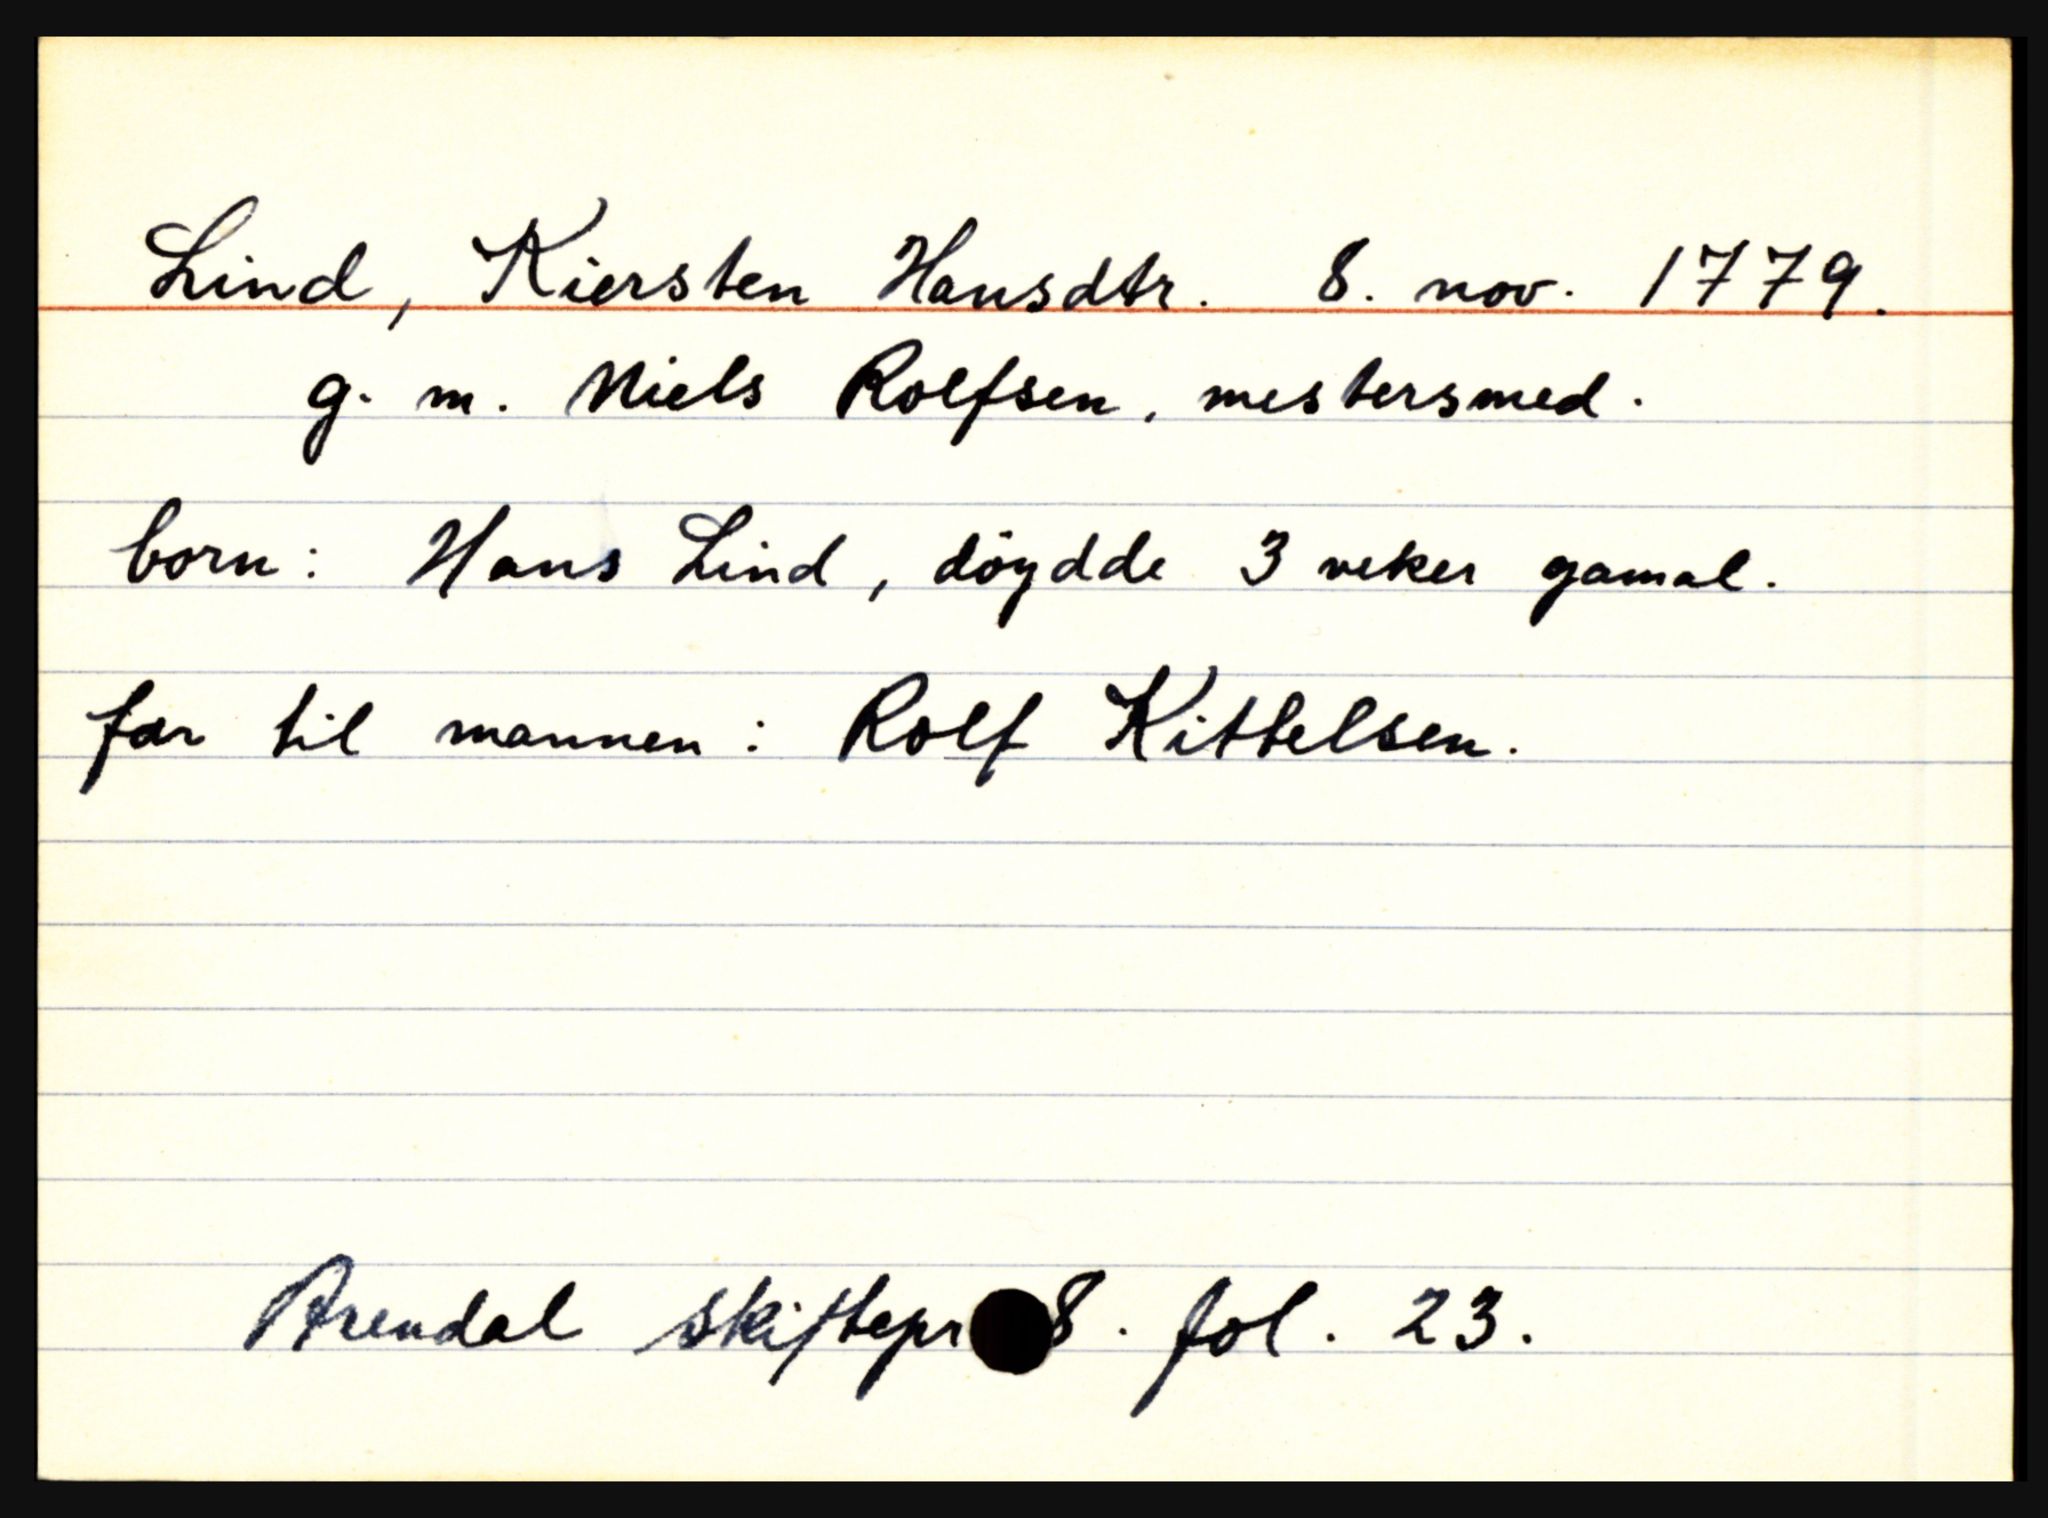 Lind, Kiersten Hansdtr. 8. nov. 1779.
g. m. Niels Rolfsen, mestersmed.
born: Hans Lind, döydde 3 veker gamal.
far til mannen: Rolf Kittelsen.
Arendal skiftepr 8. fol. 23.